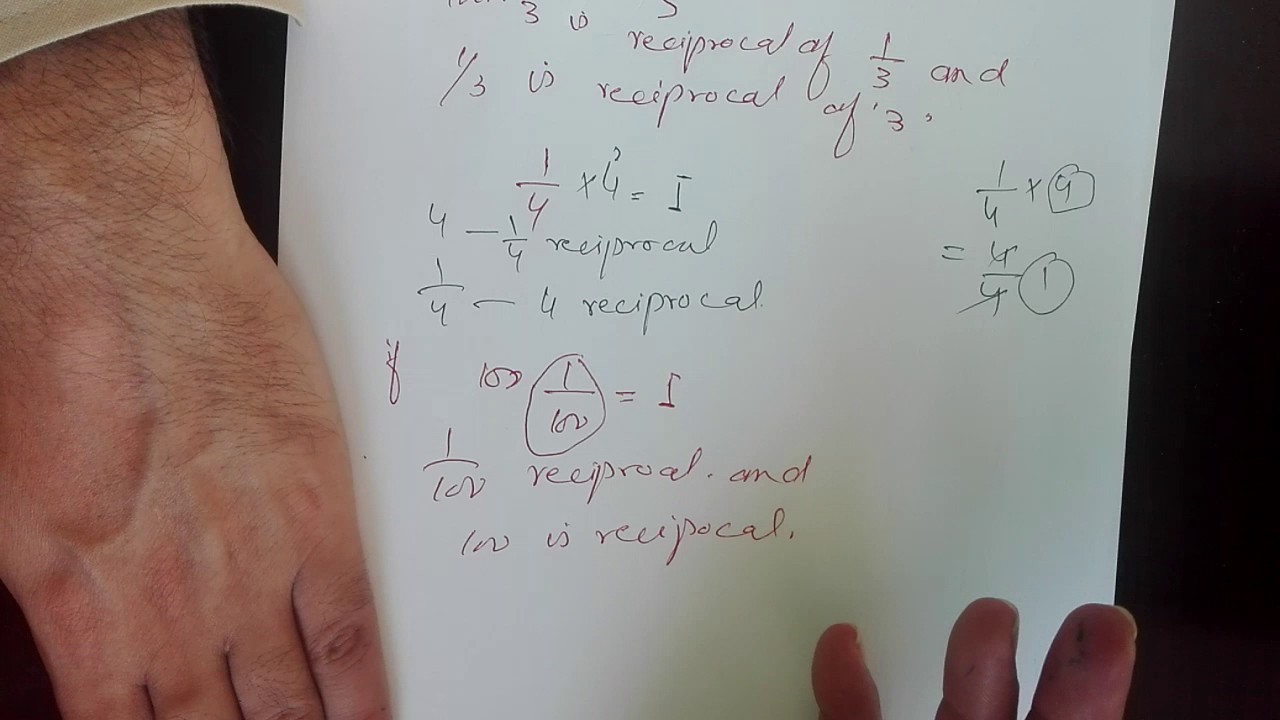 3 is
reciprocal of 1/3 and
1/3 is reciprocal of 3.
1/4 × 4 = I
4 — 1/4 reciprocal
1/4 — 4 reciprocal.
1/4 × 4
= 4/4 1
if 100 1/100 = I
1/100 reciproal. and
100 is reciprocal.